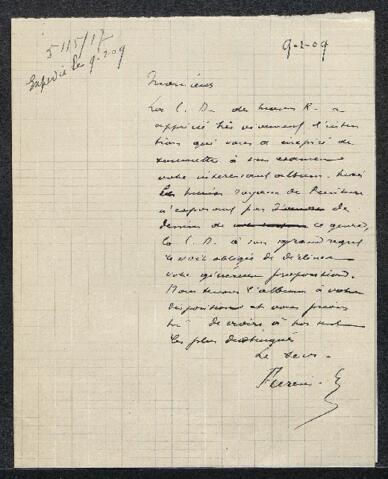 5115/17
Expédié le 9-2-09
9-2-09
Monsieur
Le C. D. de musées R. a
apprécié très vivement l'inten
tion qui vous a inspiré de
soumettre à son examen
votre intéressant album. Mais
les musées royaux de Peinture
n'exposant pas de
dessins de ce genre,
le C. D. à son grand regret
se voit obligé de décliner
votre généreuse proposition.
Nous tenons l'album à votre
disposition et vous prions
de croire, à nos
les plus distingués
Le Secr.